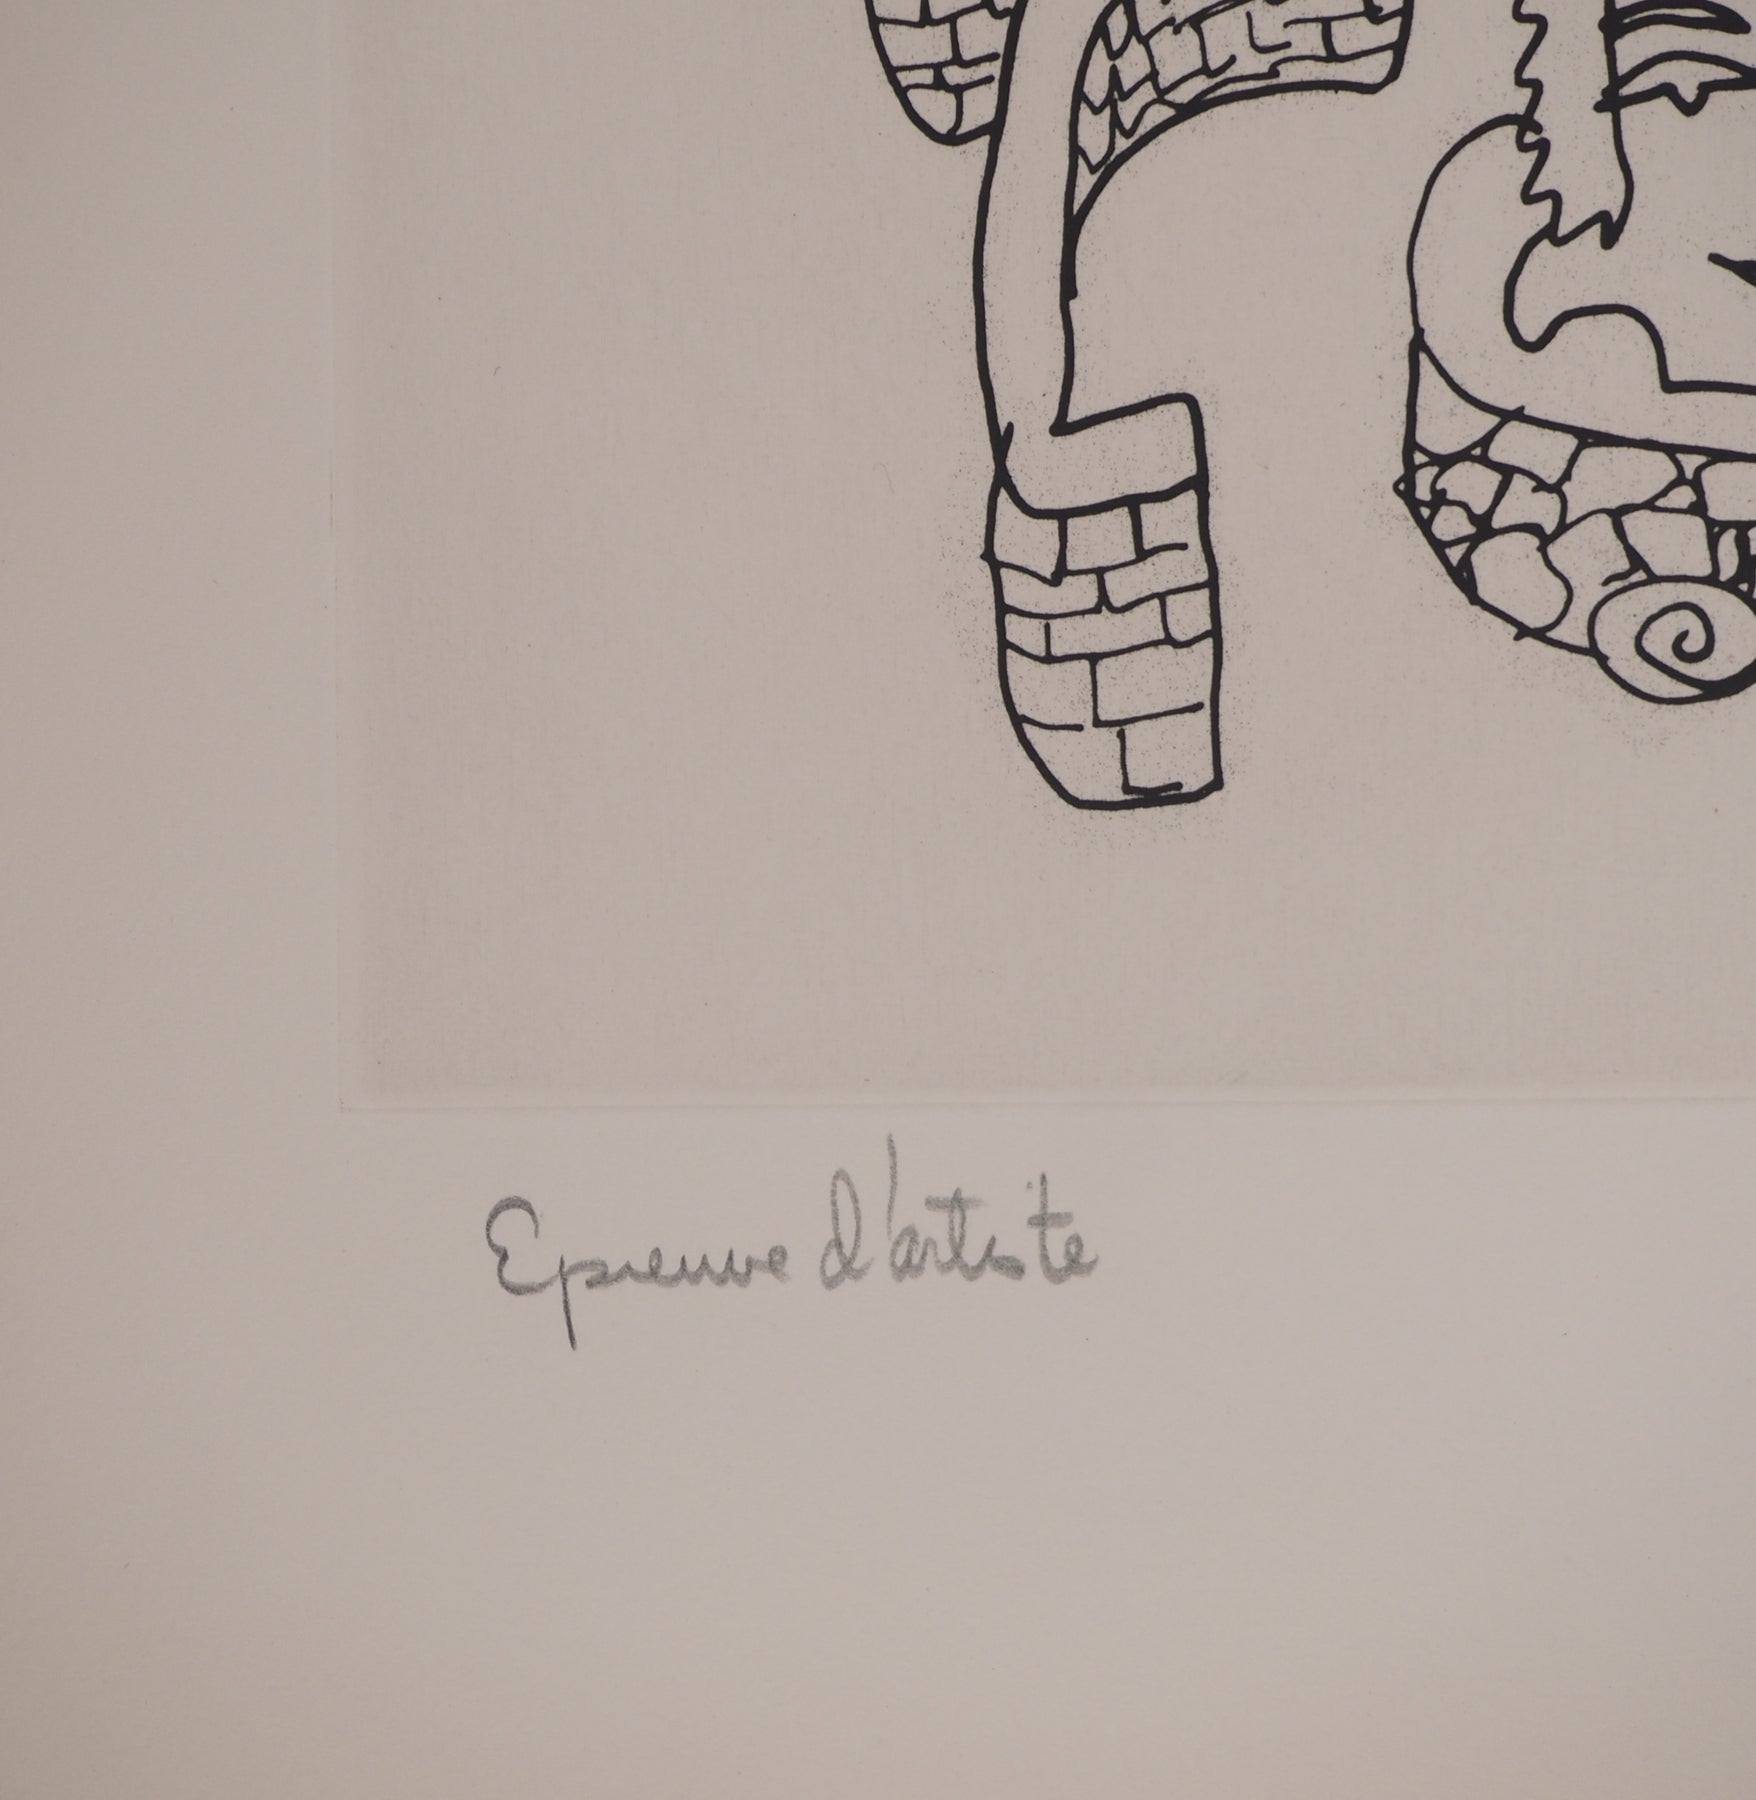 Epreuve d'artiste